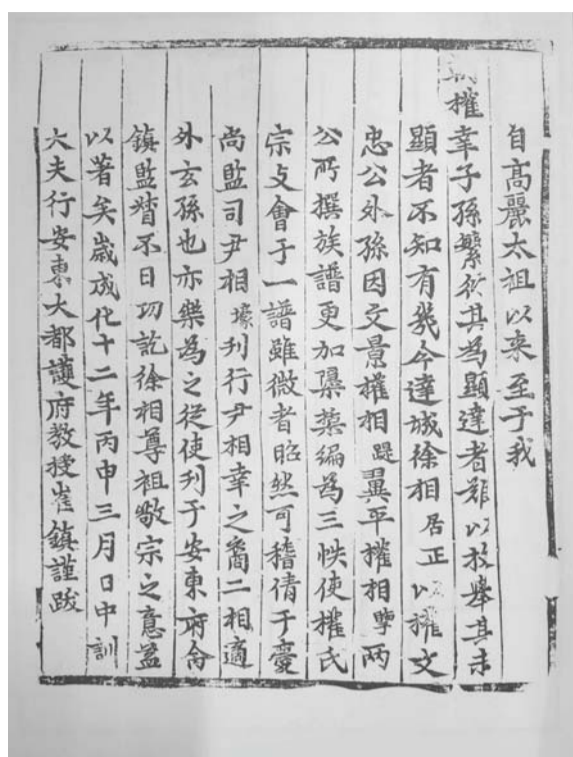 自高麗太祖以来至于我
朝權幸子孫繁衍其為顯達者難以枚舉其未
顯者不知有幾今達城徐相居正以權文
忠公外孫因文景權相踶翼平權相擥兩
公所撰族譜更加櫽栝編為三帙使權氏
宗支會于一譜雖微者昭然可稽倩于慶
尚監司尹相壕刊行尹相幸之裔二相適
外玄孫也亦樂為之從使刊于安東府令
鎮監督不日功訖徐相尊祖敬宗之意益
以著矣歲成化十二年丙申三月日中訓
大夫行安東大都護府教授崔鎮謹跋